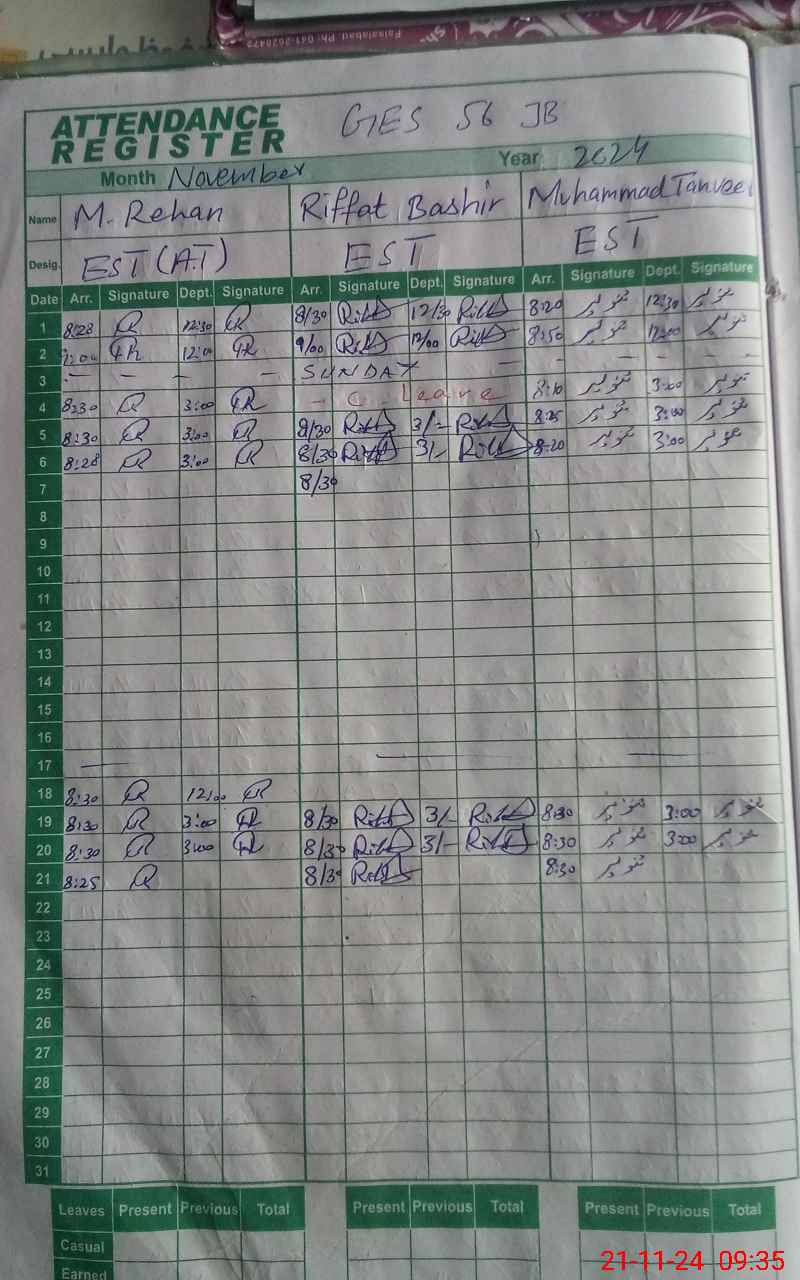 Faisalabad. Ph: 041-2620472
ATTENDANCE
REGISTER
GES 56 JB
Month November Year 2024
Name M. Rehan Riffat Bashir Muhammad Tanveer
Desig. EST (A.T) EST EST
Date Arr. Signature Dept. Signature Arr. Signature Dept. Signature Arr. Signature Dept. Signature
1 8:28 R 12:30 R 8/30 Riffat 12/30 Riffat 8:20 تنویر 12:30 تنویر
2 9:00 R 12:00 R 9/00 Riffat 12/00 Riffat 8:50 تنویر 12:00 تنویر
3 - - - - SUNDAY - - - - - -
4 8:30 R 3:00 R - C. Leave 8:10 تنویر 3:00 تنویر
5 8:30 R 3:00 R 8/30 Riffat 3/- Riffat 8:25 تنویر 3:00 تنویر
6 8:28 R 3:00 R 8/30 Riffat 3/- Riffat 8:20 تنویر 3:00 تنویر
7 8/30
8
9
10
11
12
13
14
15
16
17
18 8:30 R 12:00 R
19 8:30 R 3:00 R 8/30 Riffat 3/- Riffat 8:30 تنویر 3:00 تنویر
20 8:30 R 3:00 R 8/30 Riffat 3/- Riffat 8:30 تنویر 3:00 تنویر
21 8:25 R 8/30 Riffat 8:30 تنویر
22
23
24
25
26
27
28
29
30
31
Leaves Present Previous Total Present Previous Total Present Previous Total
Casual
Earned
21-11-24 09:35